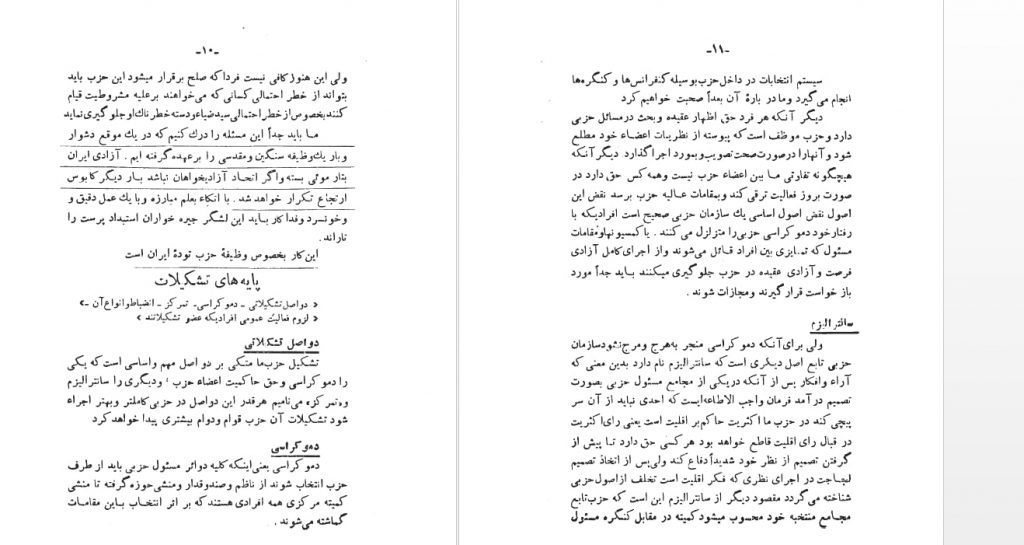 -۱۰-
ولی این هنوز کافی نیست فردا که صلح برقرار میشود این حزب باید
بتواند از خطر احتمالی کسانی که می‌خواهند بر علیه مشروطیت قیام
کنند بخصوص از خطر احتمالی سید ضیاء و دسته خطرناک او جلوگیری نماید
ما باید جداً این مسئله را درک کنیم که در یک موقع دشوار
و بار یک وظیفه سنگین و مقدسی را بر عهده گرفته ایم . آزادی ایران
بتار موئی بسته و اگر اتحاد آزادیخواهان نباشد بار دیگر کابوس
ارتجاع تکرار خواهد شد . با اتکاء بعلم مبارزه و با یک عمل دقیق و
و خونسرد و فداکار باید این لشگر جیره خواران استبداد پرست را
تاراند .
این کار بخصوص وظیفهٔ حزب تودهٔ ایران است
پایه های تشکیلات
« دو اصل تشکیلاتی ـ دموکراسی ـ تمرکز ـ انضباط و انواع آن ـ»
« لزوم فعالیت عمومی افرادیکه عضو تشکیلاتند »
دو اصل تشکیلاتی
تشکیل حزب ما متکی بر دو اصل مهم و اساسی است که یکی
را دموکراسی و حق حاکمیت اعضاء حزب ، و دیگری را سانترالیزم
و تمرکز می‌نامیم هر قدر این دو اصل در حزبی کاملتر و بهتر اجراء
شود تشکیلات آن حزب قوام و دوام بیشتری پیدا خواهد کرد
دموکراسی
دموکراسی یعنی اینکه کلیه دوائر مسئول حزبی باید از طرف
حزب انتخاب شوند از ناظم و صندوقدار و منشی حوزه گرفته تا منشی
کمیته مرکزی همه افرادی هستند که بر اثر انتخاب باین مقامات
گماشته می‌شوند .
-۱۱-
سیستم انتخابات در داخل حزب بوسیله کنفرانس‌ها و کنگره‌ها
انجام می‌گیرد و ما در بارهٔ آن بعداً صحبت خواهیم کرد
دیگر آنکه هر فرد حق اظهار عقیده و بحث در مسائل حزبی
دارد و حزب موظف است که پیوسته از نظریات اعضاء خود مطلع
شود و آنها را در صورت صحت تصویب و بمورد اجرا گذارد دیگر آنکه
هیچگونه تفاوتی ما بین اعضاء حزب نیست و همه کس حق دارد در
صورت بروز فعالیت ترقی کند و بمقامات عالیه حزب برسد نقض این
اصول نقض اصول اساسی یک سازمان حزبی صحیح است افرادیکه با
رفتار خود دموکراسی حزبی را متزلزل می‌کنند . یا کمسیونها و مقامات
مسئول که تمایزی بین افراد قائل می‌شوند و از اجرای کامل آزادی
فرصت و آزادی عقیده در حزب جلوگیری میکنند باید جداً مورد
باز خواست قرار گیرند و مجازات شوند .
سانترالیزم
ولی برای آنکه دموکراسی منجر به هرج و مرج نشود سازمان
حزبی تابع اصل دیگری است که سانترالیزم نام دارد بدین معنی که
آراء و افکار پس از آنکه در یکی از مجامع مسئول حزبی بصورت
تصمیم در آمد فرمان واجب الاطاعه ایست که احدی نباید از آن سر
پیچی کند در حزب ما اکثریت حاکم بر اقلیت است یعنی رای اکثریت
در قبال رای اقلیت قاطع خواهد بود هر کسی حق دارد تا پیش از
گرفتن تصمیم از نظر خود شدیداً دفاع کند ولی پس از اتخاذ تصمیم
لجاجت در اجرای نظری که فکر اقلیت است تخلف از اصول حزبی
شناخته می گردد مقصود دیگر از سانترالیزم این است که حزب تابع
مجامع منتخبه خود محسوب میشود کمیته در مقابل کنگره مسئول